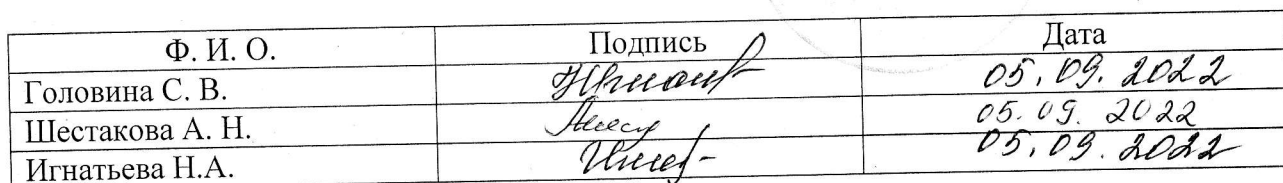 Ф. И. О. Подпись Дата
Головина С. В. 05.09.2022
Шестакова А. Н. 05.09.2022
Игнатьева Н.А. 05.09.2022